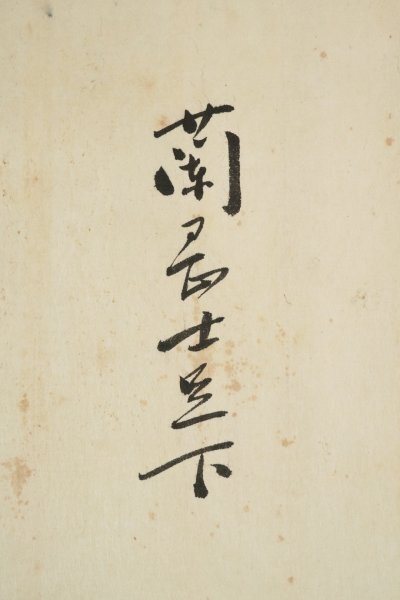 蘭士足下